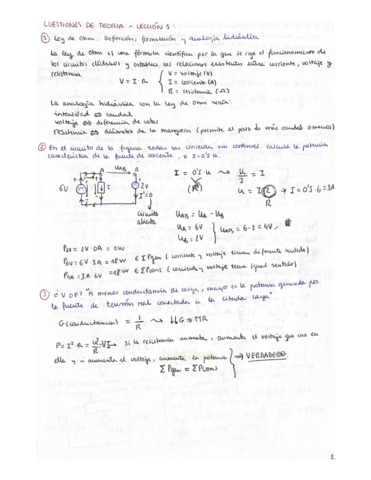 CUESTIONES DE TEORIA - LECCIÓN 1
① Ley de Ohm. Definición, formulación y analogía hidráulica
La ley de ohm es una fórmula científica por la que se rige el funcionamiento de
los circuitos eléctricos y establece las relaciones existentes entre corriente, voltaje y
resistencia
V = I · R
V = voltaje (V)
I = corriente (A)
R = resistencia (Ω)
La analogía hidráulica con la ley de Ohm sería:
intensidad ⇔ caudal
voltaje ⇔ diferencia de cotas
resistencia ⇔ diámetro de la manguera (permite el paso de más caudal o menos)
② En el circuito de la figura todas las corrientes son continuas. Calcula la potencia
característica de la fuente de corriente, I = 0'5 u
A
UAB
B
6V
I
2V
I'=0
circuito
abierto
I = 0'5 u → u/2 = I
u = I · 2 → I = 0'5 · 6 = 3A
R
UAB = UA - UB
UA = 6V
UB = 2V
UAB = 6 - 2 = 4V
P2V = 2V · 0A = 0W
P6V = 6V · 3A = 18W ∈ ΣPgen (corriente y voltaje tienen diferente sentido)
P3A = 3A · 6V = 18W ∈ ΣPcons (corriente y voltaje tiene igual sentido)
③ ¿V o F? "A menor conductancia de carga, mayor es la potencia generada por
la fuente de tensión real conectada a la citada carga"
G (conductancia) = 1/R → ↓↓G ⇒ ↑↑R
P = I² · R = u²/R = V·I → Si la resistencia aumenta, aumenta el voltaje que cae en
ella y si aumenta el voltaje, aumenta la potencia
ΣPgen = ΣPcons
⇒ VERDADERO
1.